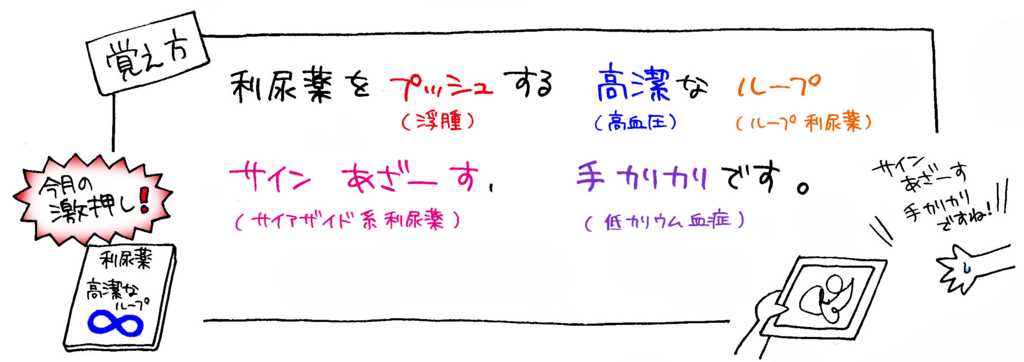 覚え方
利尿薬を プッシュする 高潔な ループ
(浮腫) (高血圧) (ループ利尿薬)
サイン あざーす、 手カリカリです。
(サイアザイド系利尿薬) (低カリウム血症)
今月の
激押し!
利尿薬
高潔な
ループ
サイン
あざーす
手カリカリ
ですね!